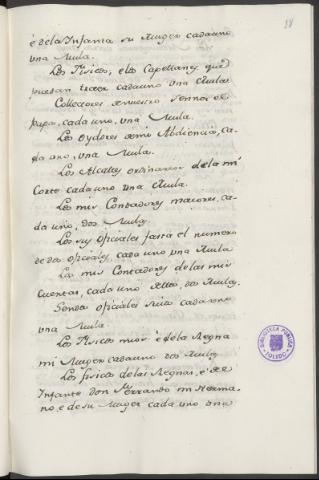 28
è dela Infanta su Muger cada uno
una Mula.
Los Fisicos, e los Capellanes, que
puedan traer cada uno una Mula
Collectores de nuestro Sennor el
Papa, cada uno, una Mula.
Los oydores de mi Abdiencia, ca-
da uno, una Mula.
Los Alcalles ordinarios de la mi
Corte cada uno una Mula.
Los mis Contadores maiores, ca-
da uno, dos Mulas.
Los sus oficiales fasta el numero
de dos oficiales, cada uno una Mula
Los mis Contadores de las mis
Cuentas, cada uno dellos dos Mulas,
Sendos oficiales suios cada uno
una Mula.
Los Fisicos mios è de la Regna
mi Muger cada uno dos Mulas
Los fisicos de las Regnas, è del
Infante don Ferrando mi Herma-
no, e de su Muger cada uno una
BIBLIOTECA PUBLICA
TOLEDO